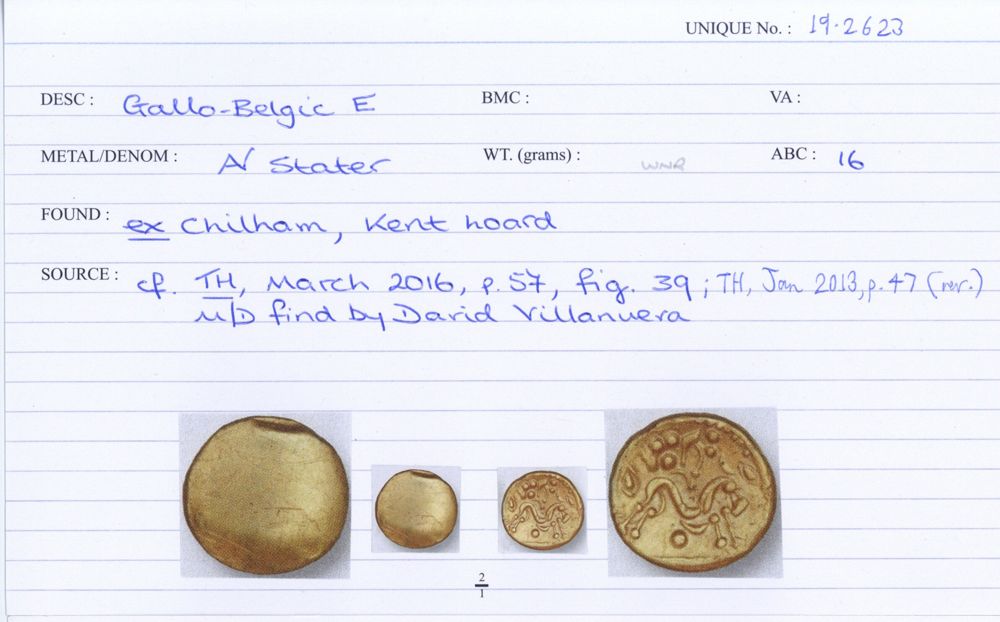 UNIQUE No. : 19.2623
DESC : Gallo-Belgic E BMC : VA :
METAL/DENOM : AV Stater WT. (grams) : WNR ABC : 16
FOUND : ex Chilham, Kent hoard
SOURCE : cf. TH, March 2016, p.57, fig. 39 ; TH, Jan 2013, p.47 (rev.)
M/D find by David Villanuera
2
1